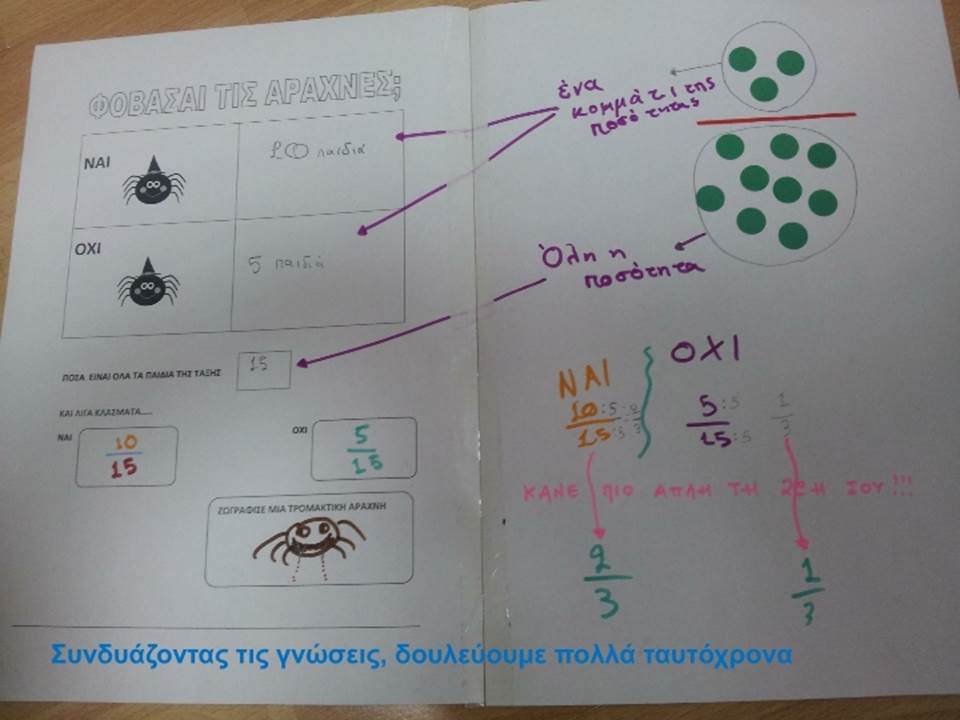 ΦΟΒΑΣΑΙ ΤΙΣ ΑΡΑΧΝΕΣ;
ΝΑΙ
10 παιδιά
ΟΧΙ
5 παιδιά
ΠΟΣΑ ΕΙΝΑΙ ΟΛΑ ΤΑ ΠΑΙΔΙΑ ΤΗΣ ΤΑΞΗΣ
15
ΚΑΙ ΛΙΓΑ ΚΛΑΣΜΑΤΑ.....
ΝΑΙ
10
15
ΟΧΙ
5
15
ΖΩΓΡΑΦΙΣΕ ΜΙΑ ΤΡΟΜΑΚΤΙΚΗ ΑΡΑΧΝΗ
ένα
κομμάτι της
ποσότητας
Όλη η
ποσότητα
ΝΑΙ
10:5 = 2
15:5 3
ΟΧΙ
5:5 1
15:5 3
ΚΑΝΕ ΠΙΟ ΑΠΛΗ ΤΗ ΖΩΗ ΣΟΥ!!!
2
3
1
3
Συνδυάζοντας τις γνώσεις, δουλεύουμε πολλά ταυτόχρονα